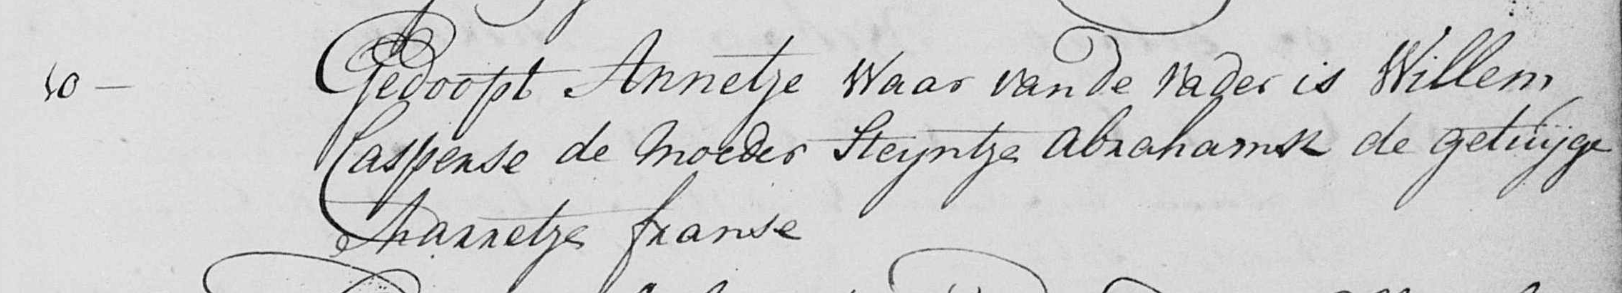 10 – Gedoopt Annetje waar van de vader is Willem
Caspense de Moeder Steyntje abrahamse de getuijge
Annetje franse